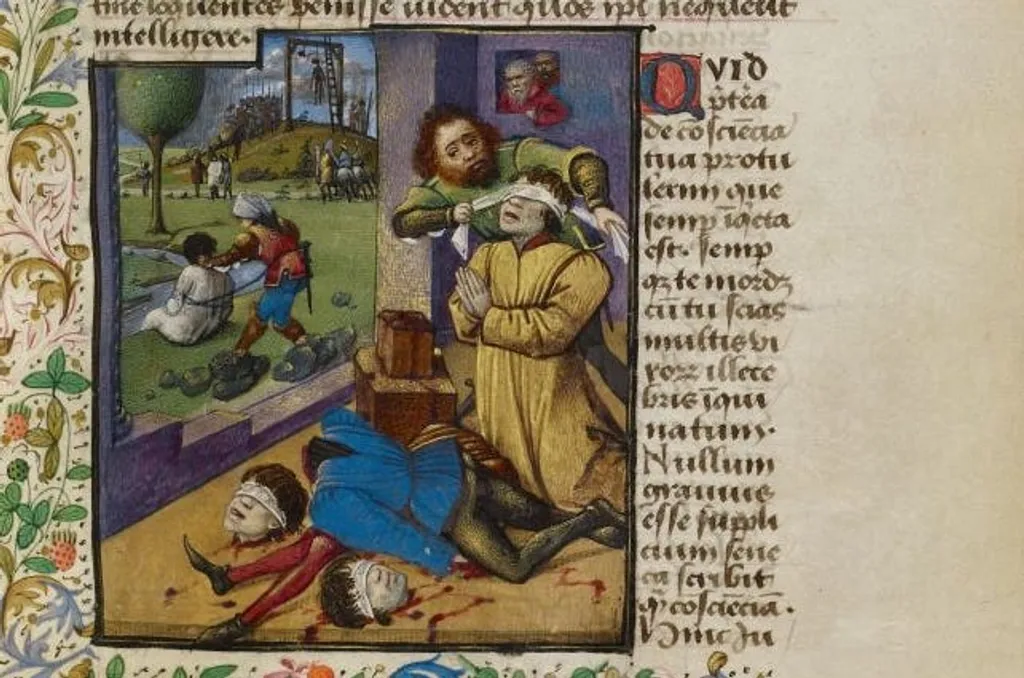 me loquentes venisse vident quos ipi nequeūt
intelligere.
QVID
pt̄ea
de cōsciēcia
tua protu
lerim que
semp īq̄eta
est. semp
qz te mordz
cū tu scias
multis vi
roꝝ illece
bris īqui
natum.
Nullum
grauius
esse suppli
cium sene
ca scribit
ꝙ cōsciēciā.
Hinc Ju